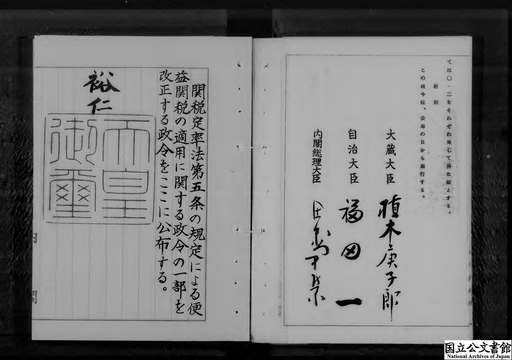 関税定率法第五条の規定による便
益関税の適用に関する政令の一部を
改正する政令をここに公布する。
裕仁
天皇
御璽
内閣
附則
この政令は、公布の日から施行する。
大蔵大臣 植木庚子郎
自治大臣 福田一
内閣総理大臣 田中角榮
国立公文書館
National Archives of Japan